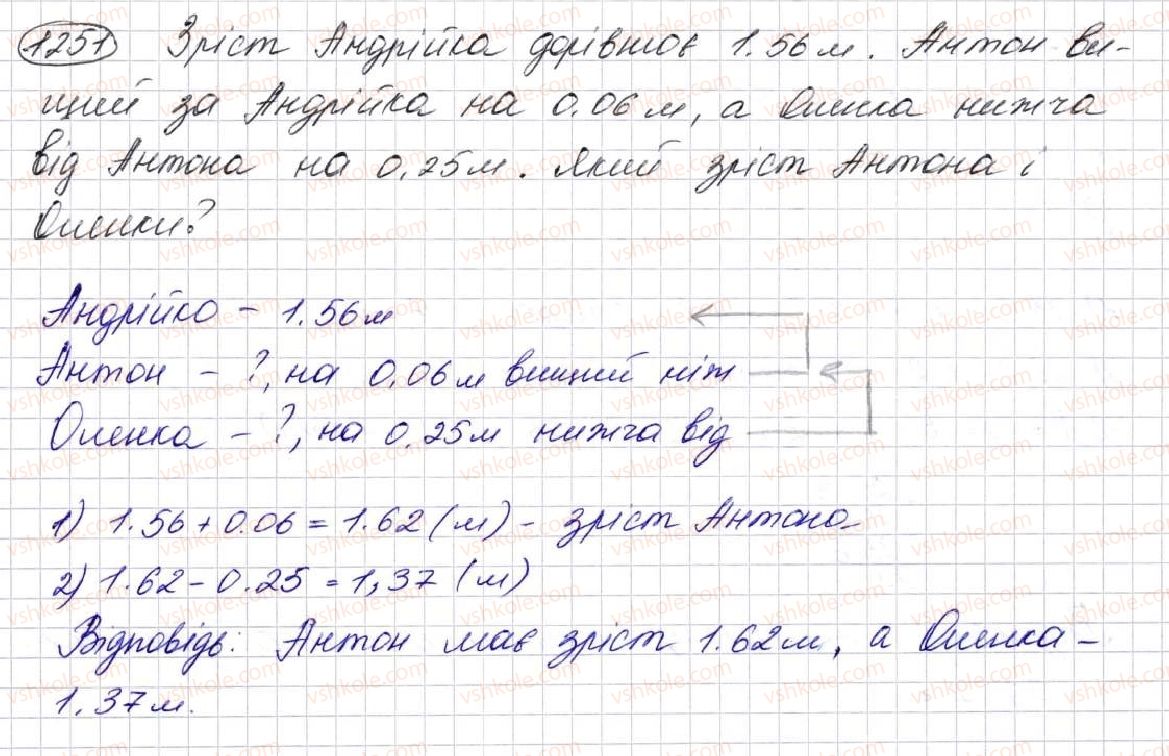 1251 Зріст Андрійка дорівнює 1.56 м. Антон ви-
щий за Андрійка на 0.06 м, а Оленка нижча
від Антона на 0,25 м. Який зріст Антона і
Оленки?
Андрійко – 1.56 м
Антон – ?, на 0.06 м вищий ніж
Оленка – ?, на 0.25 м нижча від
1) 1.56 + 0.06 = 1.62 (м) – зріст Антона
2) 1.62 – 0.25 = 1,37 (м)
Відповідь: Антон має зріст 1.62 м, а Оленка –
1,37 м.